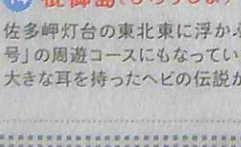 佐多岬灯台の東北東に浮か
号」の周遊コースにもなってい
大きな耳を持ったヘビの伝説が